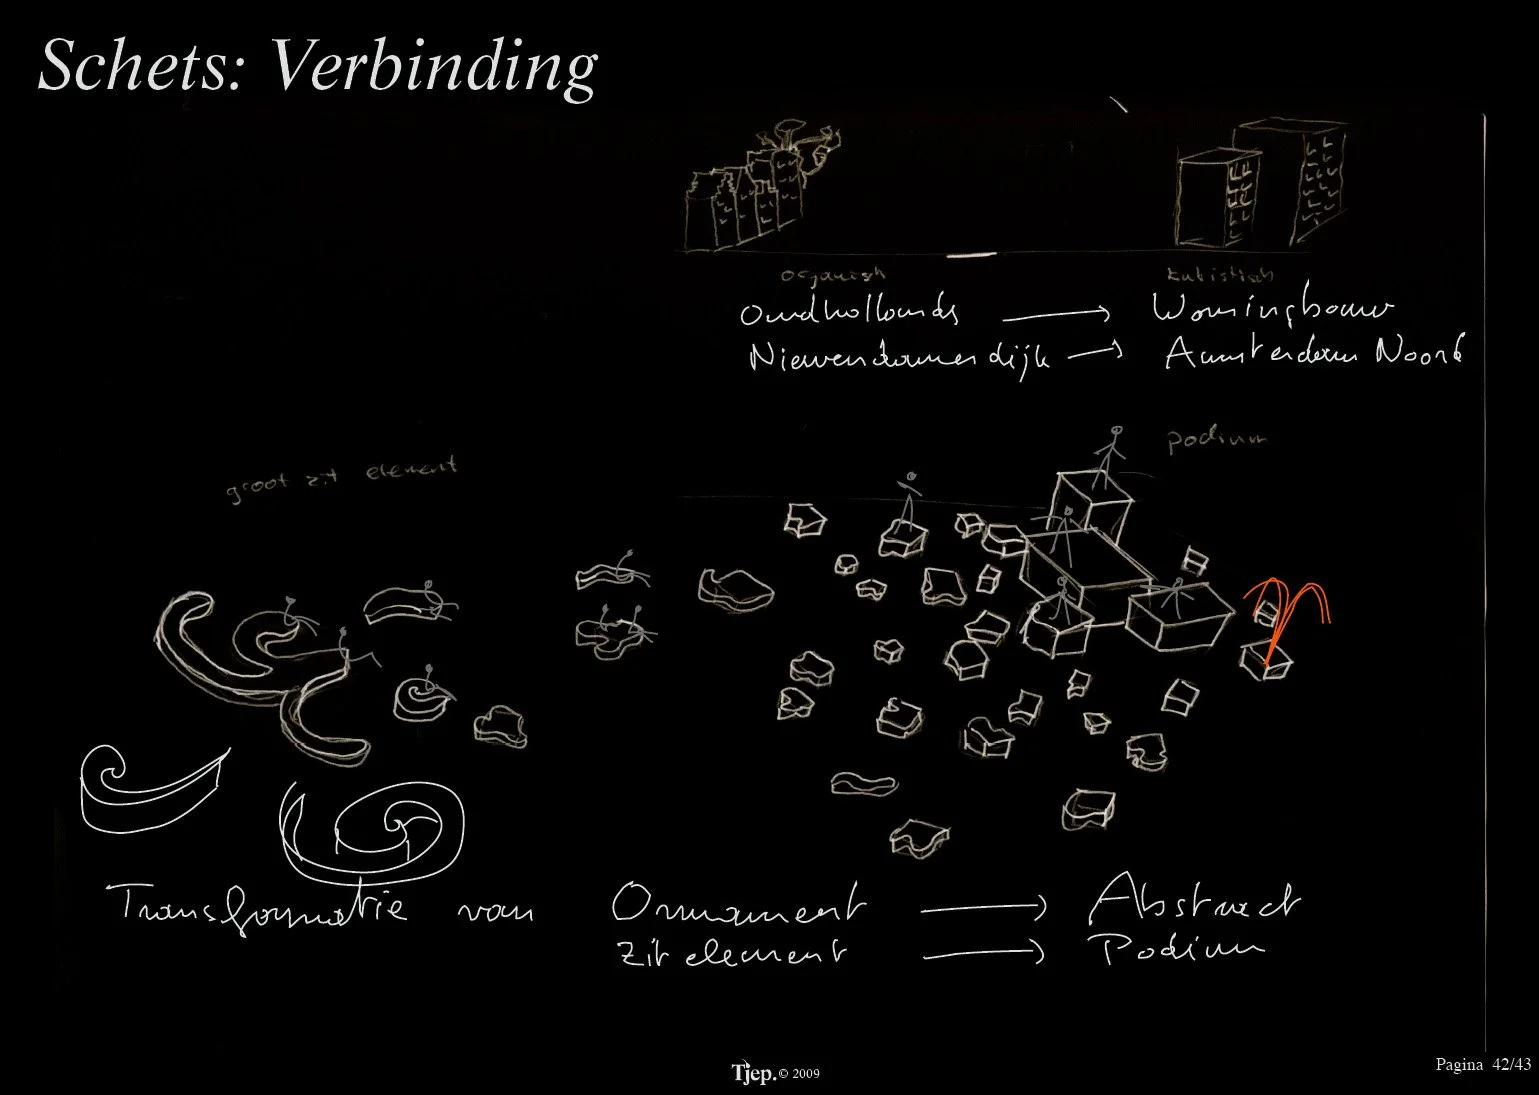 Schets: Verbinding
organisch
kubistisch
Oudhollands → Woningbouw
Nieuwendammerdijk → Amsterdam Noord
groot zit element
podium
Transformatie van Ornament → Abstract
Zit element → Podium
Tjep. © 2009
Pagina 42/43